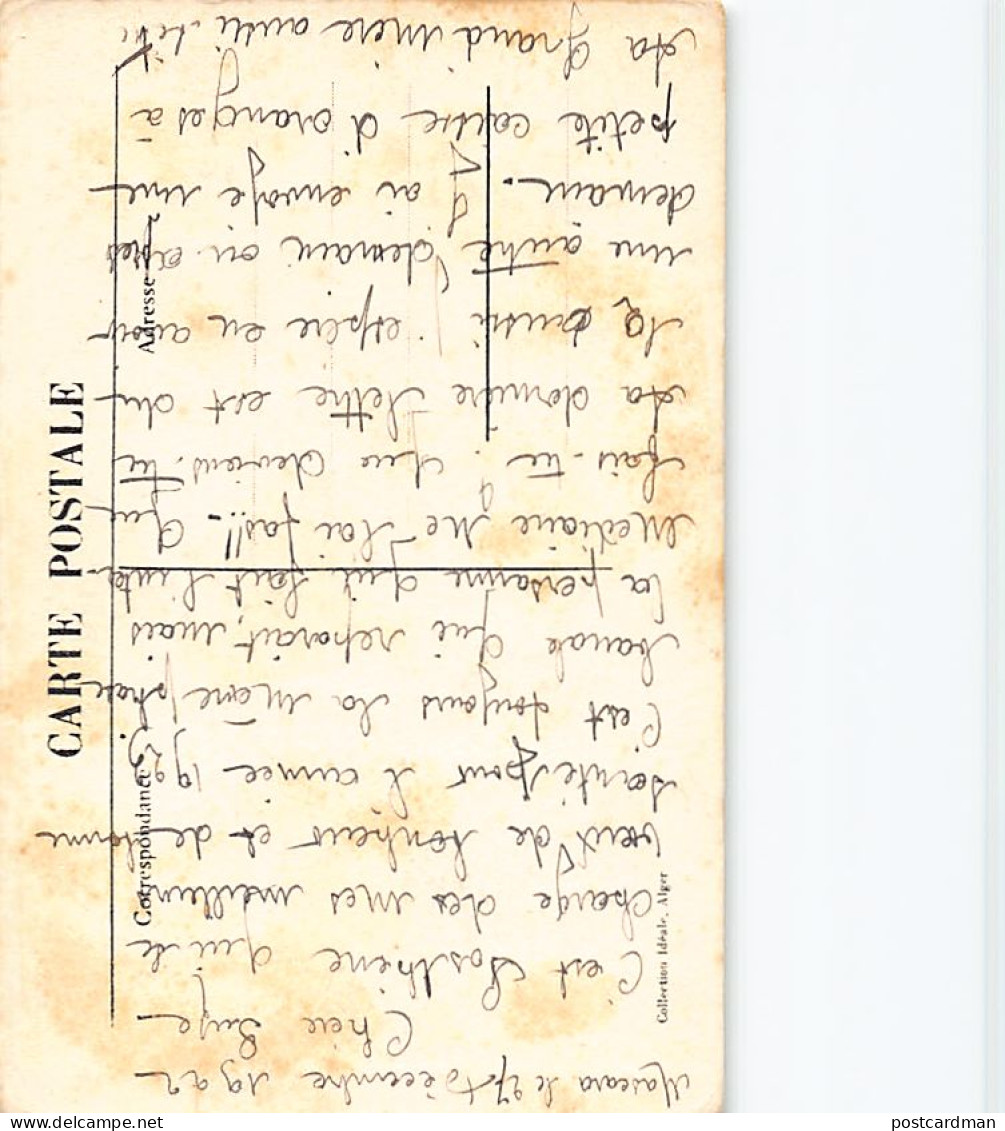 CARTE POSTALE
Correspondance
Adresse
Collection Idéale, Alger
Mascara le 27 Décembre 1922
Chère
C'est qui se
charge des mes meilleurs
vœux de bonheur et de bonne
santé pour l'année 1923.
C'est toujours la même phrase
banale qui reparait, mais
la personne qui fait l'inter
médiaire ne l'ai pas!!- Que
fais-tu. Que deviens-tu
ta dernière lettre est du
12 aussi j'espère en avoir
une autre demain ou après
demain. J'ai envoyé une
petite caisse d'oranges à
ta grand mère aussi
postcardman